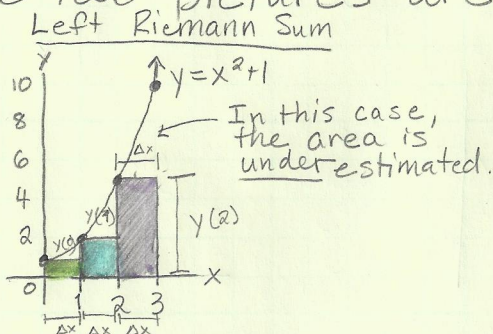 Left Riemann Sum
y
10
y=x²+1
8
In this case,
the area is
underestimated.
6
Δx
4
y(2)
2
y(0)
0
x
1 2 3
Δx Δx Δx